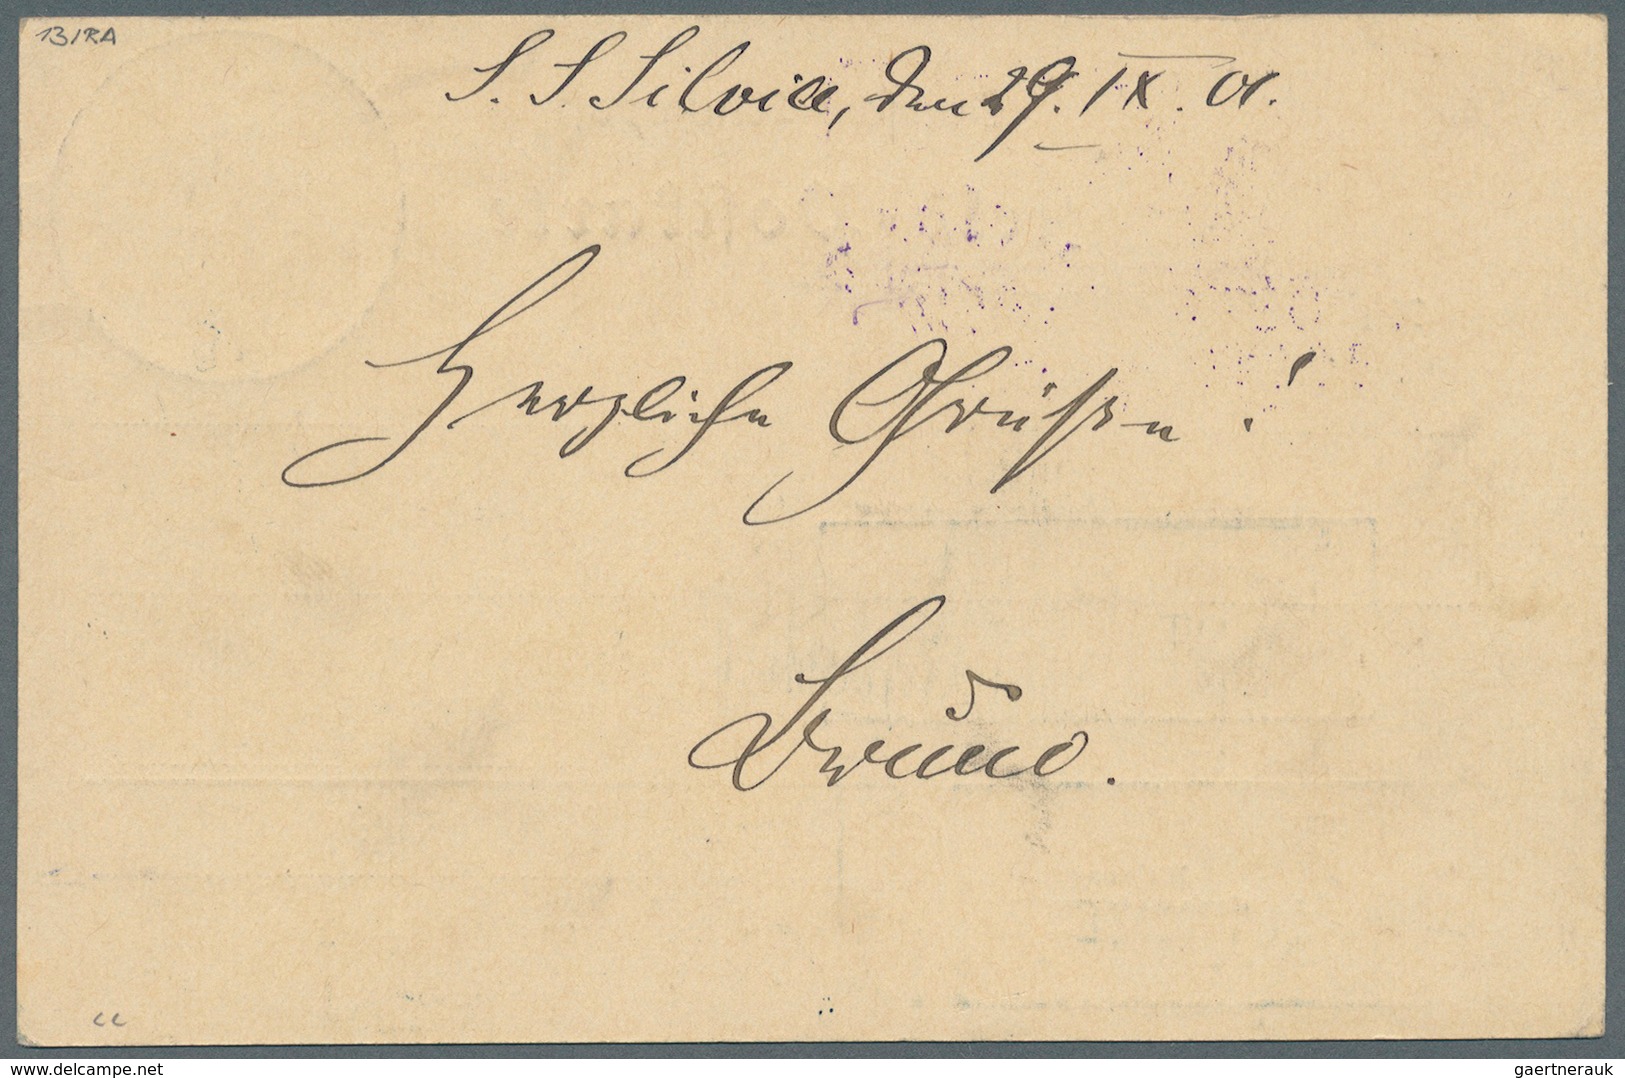 13/RA
S. S. Silvia, den 29. IX. 01.
Herzliche Grüßen!
Bruno.
cc
delcampe.net
gaertnerauk